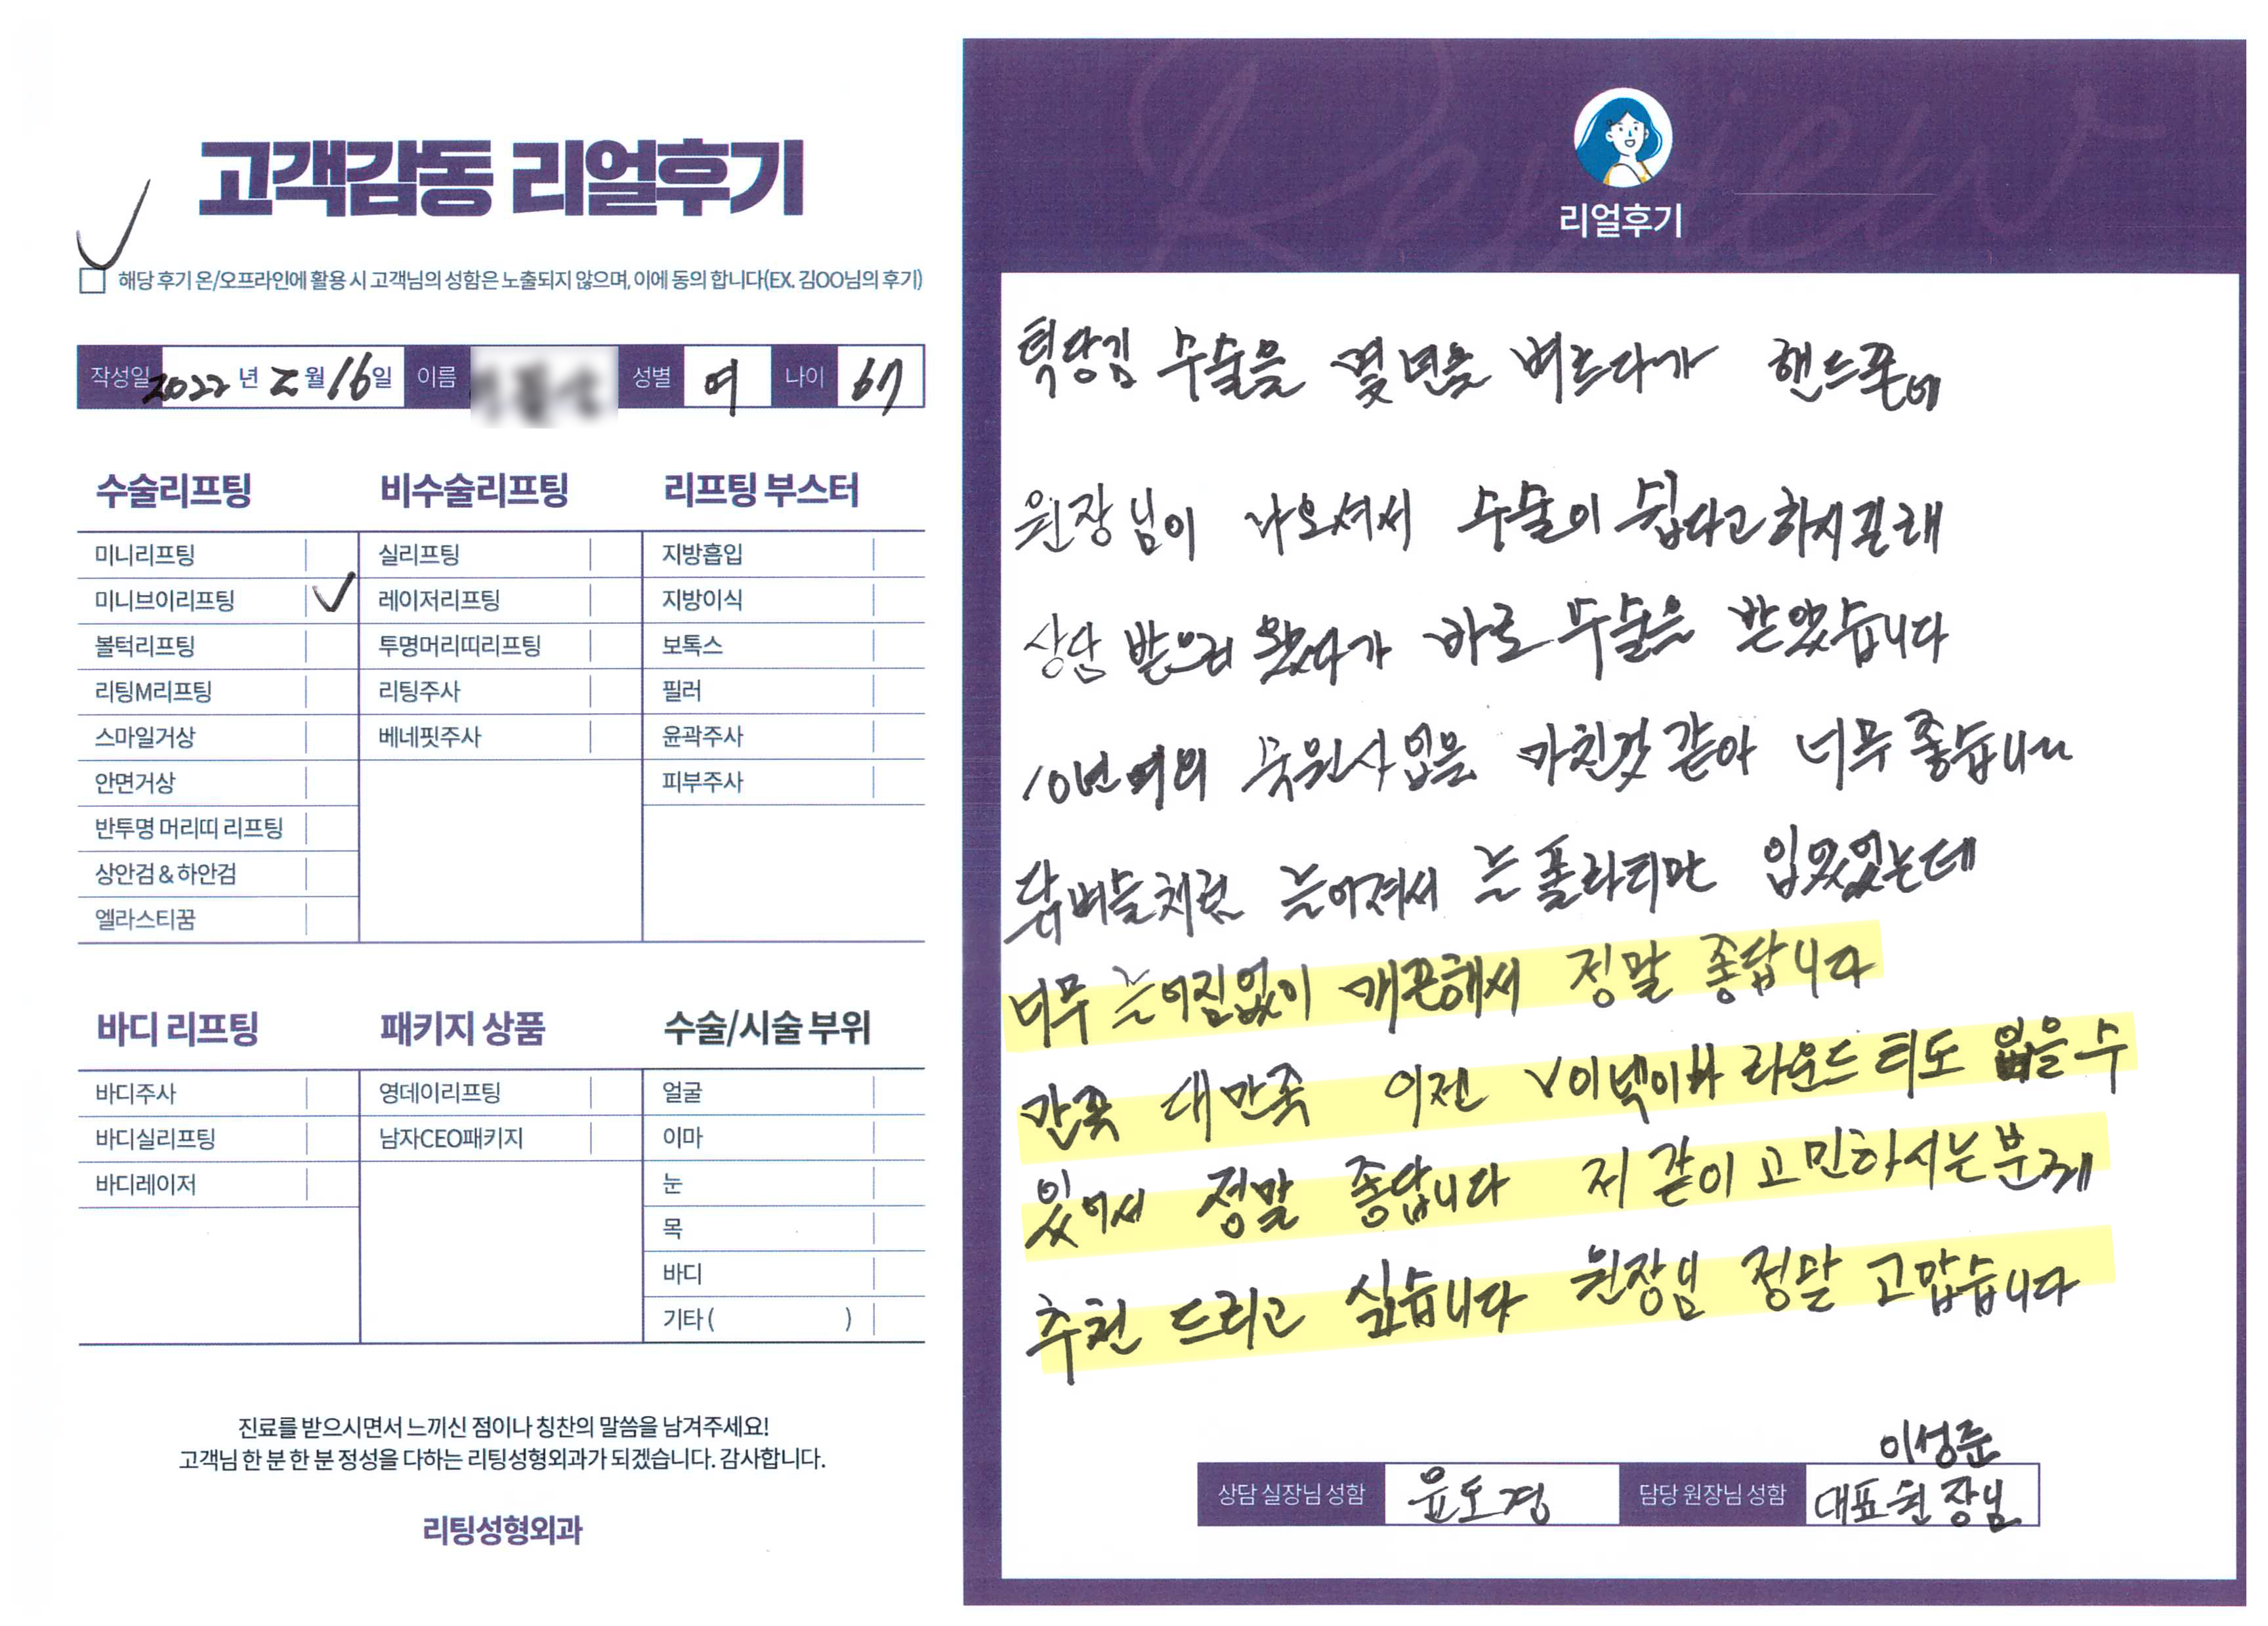 고객감동 리얼후기
해당 후기 온/오프라인에 활용 시 고객님의 성함은 노출되지 않으며, 이에 동의 합니다(EX. 김OO님의 후기)
작성일 2022 년 2 월 16 일 이름 성별 여 나이 67
수술리프팅
미니리프팅
미니브이리프팅
볼턱리프팅
리팅M리프팅
스마일거상
안면거상
반투명 머리띠 리프팅
상안검 & 하안검
엘라스티꿈
비수술리프팅
실리프팅
레이저리프팅
투명머리띠리프팅
리팅주사
베네핏주사
리프팅 부스터
지방흡입
지방이식
보톡스
필러
윤곽주사
피부주사
바디 리프팅
바디주사
바디실리프팅
바디레이저
패키지 상품
영데이리프팅
남자CEO패키지
수술/시술 부위
얼굴
이마
눈
목
바디
기타 ( )
진료를 받으시면서 느끼신 점이나 칭찬의 말씀을 남겨주세요!
고객님 한 분 한 분 정성을 다하는 리팅성형외과가 되겠습니다. 감사합니다.
리팅성형외과
Review
리얼후기
턱당김 수술을 몇 년을 벼르다가 핸드폰에
원장님이 나오셔서 수술이 쉽다고 하시길래
상담 받으러 왔다가 바로 수술을 받았습니다
10년 여의 같아 너무 좋습니다
늘어져서 폴라티만 입었었는데
너무 늘어짐없이 개끈해서 정말 좋답니다
만족 대만족 이젠 V이넥이나 라운드 티도 입을 수
있어서 정말 좋답니다 저 같이 고민하시는분께
추천 드리고 싶습니다 원장님 정말 고맙습니다
상담 실장님 성함 윤도경 담당 원장님 성함 이성준
대표원장님